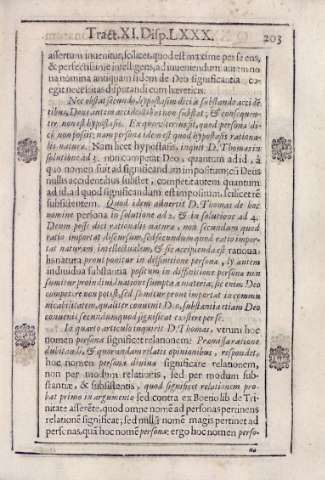 Tract. XI. Disp. LXXX. 203
assertum invenitur, scilicet quod est maxime per se ens,
& perfectissime intelligens, ad inveniendum autem no-
va nomina antiquam fidem de Deo significantia co-
egit necessitas disputandi cum hæreticis.
Nec obstat secundo, hypostasim dici à substando accidẽ-
tibus, Deus autem accidentibus non substat, & consequen-
ter non est hypostasis. Ex quo quod persona di-
ci non possit; nam persona idem est quod hypostasis rationa-
lis naturæ. Nam licet hypostasis, inquit D. Thomas in
solutione ad 3. non competat Deo, quantum ad id, à
quo nomen fuit ad significandum impositum: Deus
nullis accidentibus substet, competit autem quantum
ad id, ad quod significandum est impositum, scilicet rẽ
subsistentem. Quod idem advertit D. Thomas de hoc
nomine persona in solutione ad 2. & in solutione ad 4.
Deum posse dici rationalis naturæ, non secundum quod
ratio importat discursum, sed secundum quod ratio impor-
tat naturam intellectualem, & sic accipienda est rationa-
lis natura prout ponitur in definitione personæ, ly autem
individua substantia positum in definitione personæ non
sumitur pro individuatione sumpta à materia; sic enim Deo
competere non potest, sed sumitur prout importat in commu-
nicabilitatem, qualiter convenit Deo, substantia etiam Deo
convenit secundum quod significat existere per se.
In quarto articulo inquirit D. Thomas, utrum hoc
nomen persona significet relationem? Pro
dubitationis, & quorundam relatis opinionibus, respondet,
hoc nomen persona divina significare relationem,
non per modum relativi, sed per modum sub-
stantiæ, & subsistentis, quod significet relationem pro-
bat primo in argumento sed contra ex Boetio lib. de Tri-
nitate asserẽte, quod omne nomẽ ad personas pertinens
relationẽ significat, sed nullũ nomẽ magis pertinet ad
personas, quã hoc nomẽ personæ ergo hoc nomen perso-